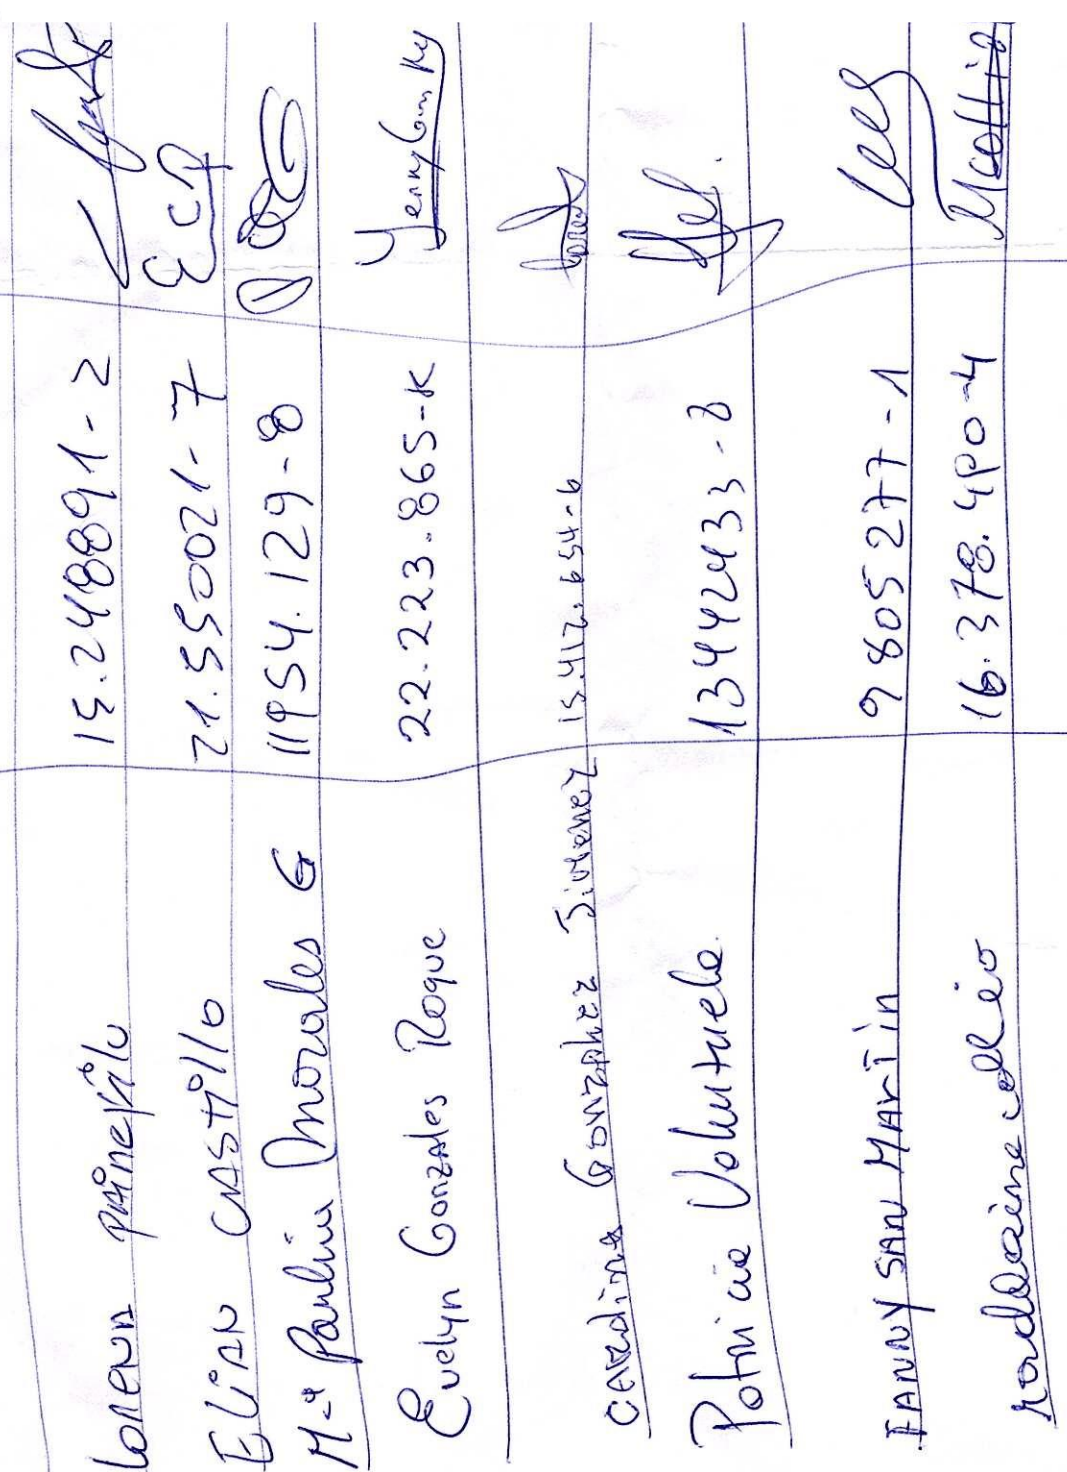 Lorena Painefilo 15.248891-2
ELiAN CASTillo 21.550021-7 ECA
M-ª Paulina Morales G 11954.129-8
Evelyn Gonzales Roque 22.223.865-K
Carolina González Jimenez 15.412.654-6
Patricia Valenzuela 13442433-8
FANNY SAN MARTin 9805277-1
16.378.490-4